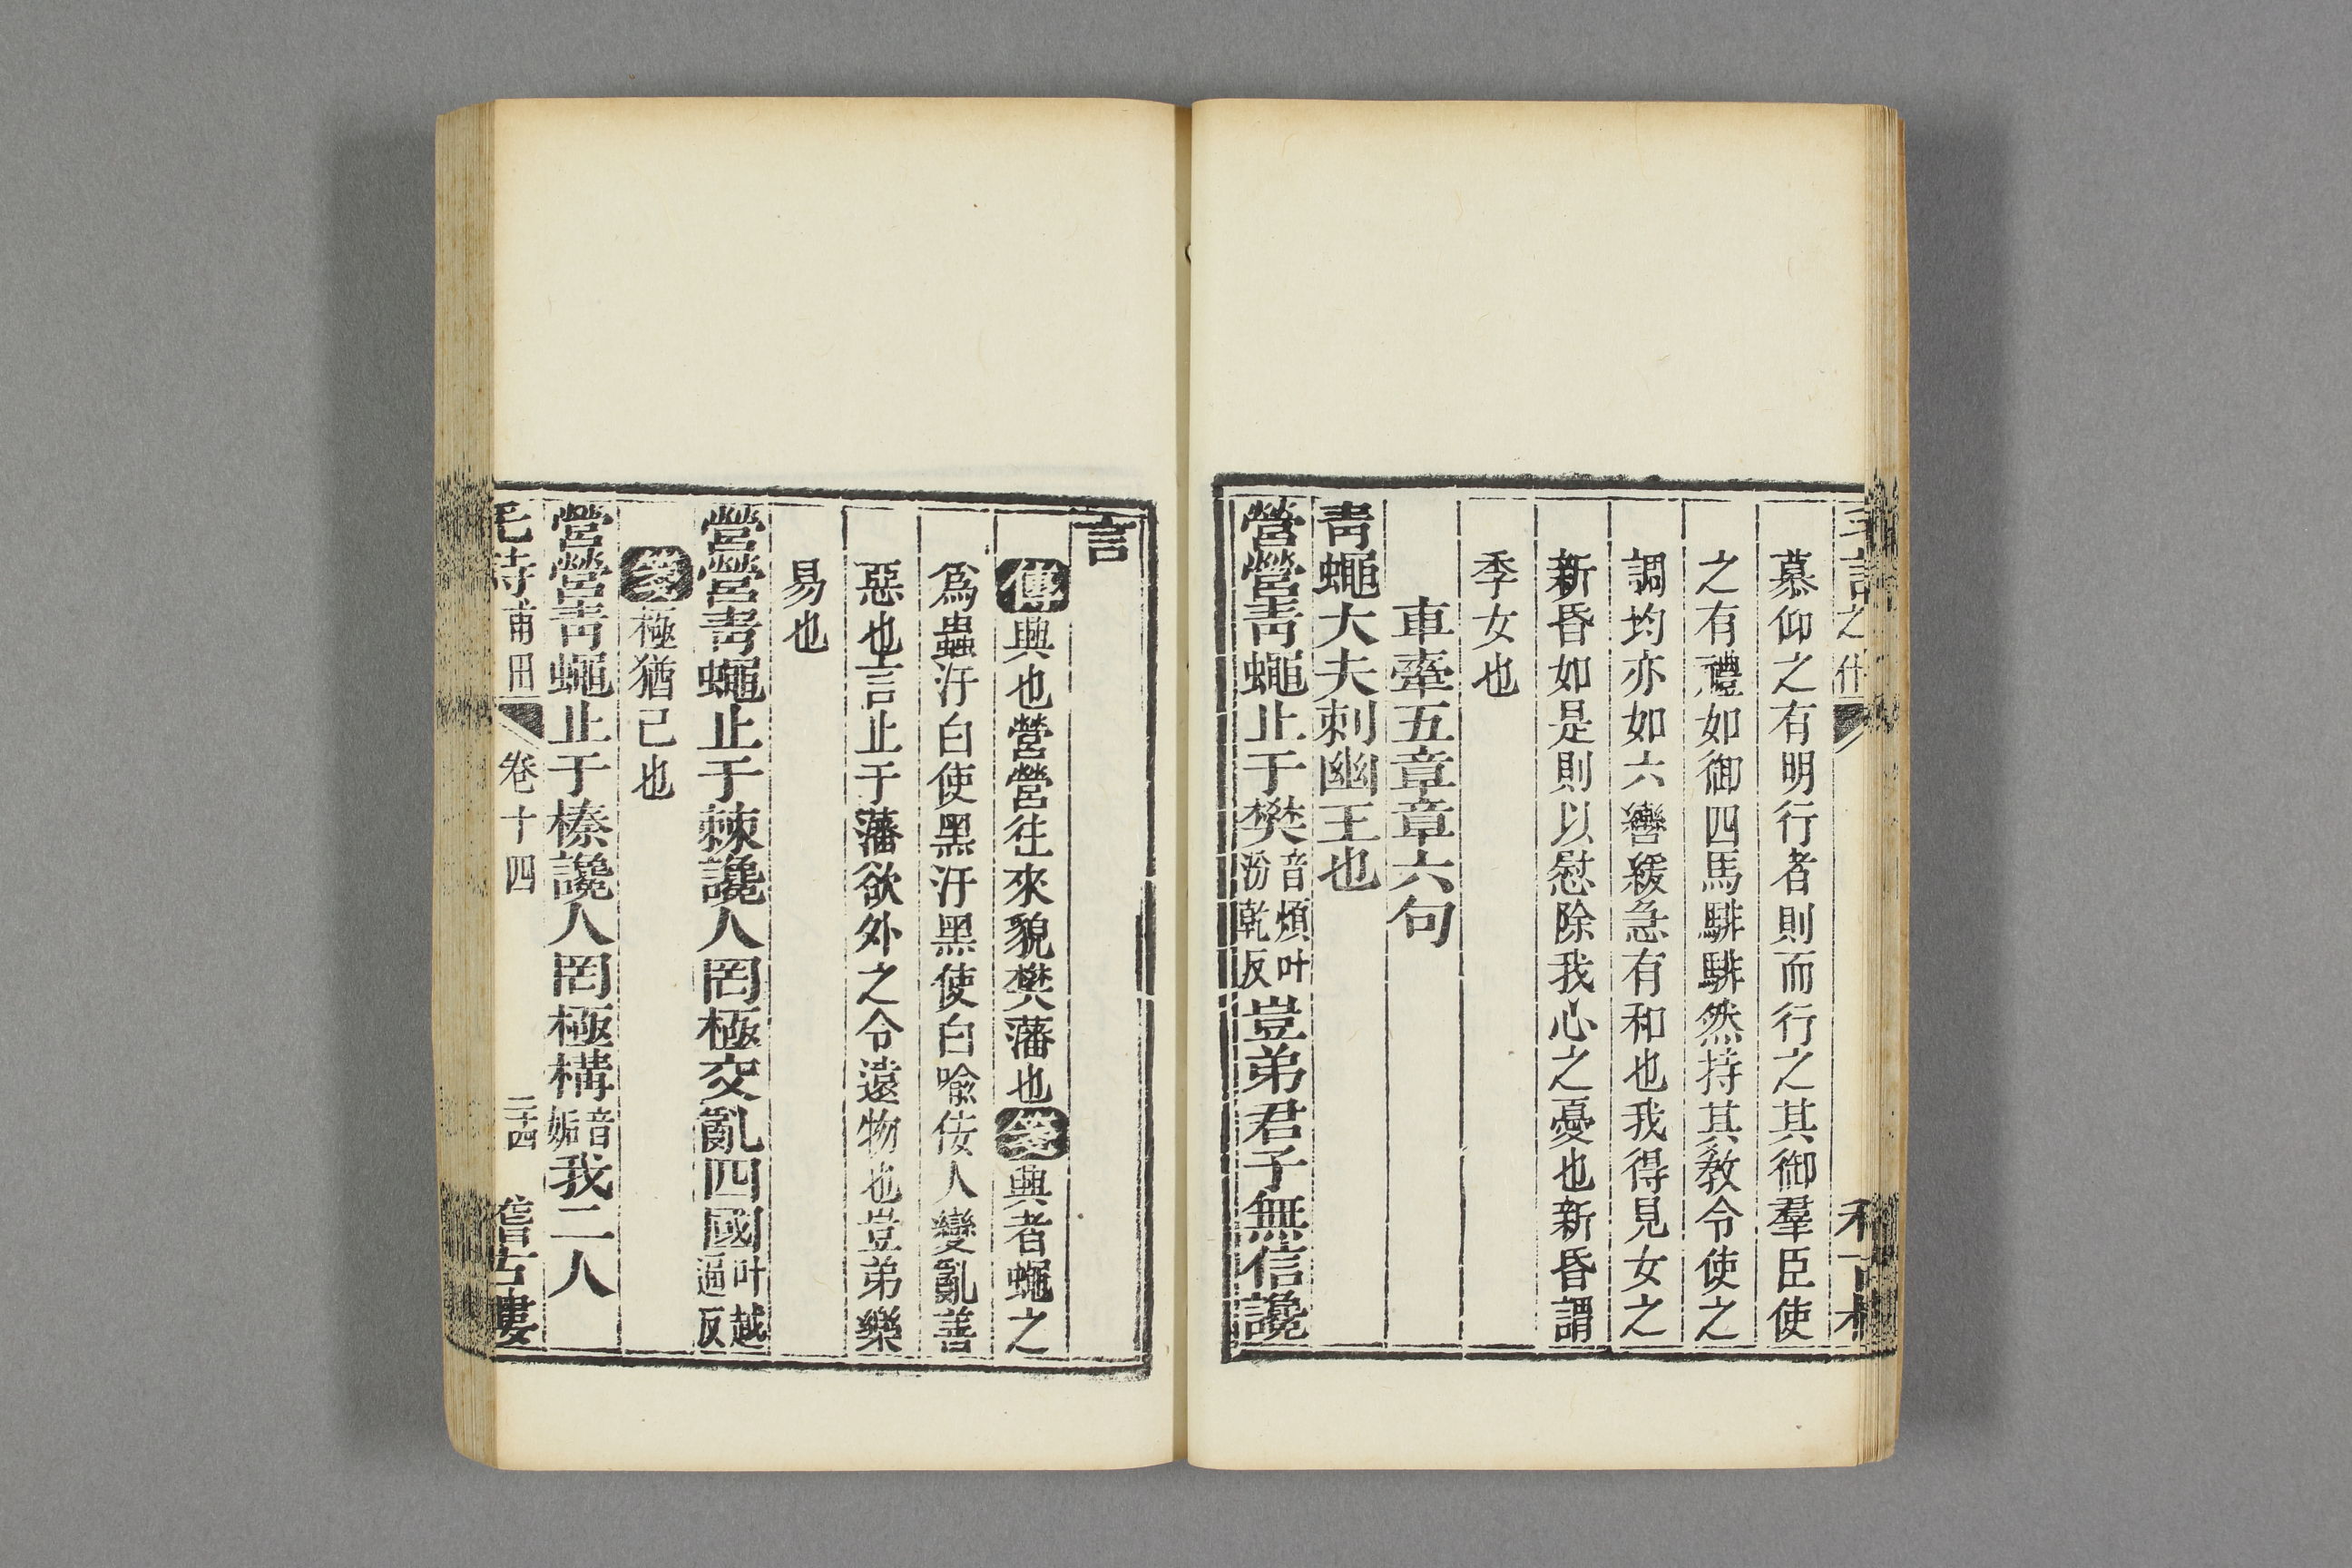 慕仰之有明行者則而行之其御羣臣使
之有禮如御四馬騑騑然持其敎令使之
調均亦如六轡緩急有和也我得見女之
新昏如是則以慰除我心之憂也新昏謂
季女也
車舝五章章六句
靑蠅大夫刺幽王也
營營靑蠅止于樊音煩叶汾乾反豈弟君子無信讒
言
傳興也營營往來貌樊藩也箋興者蠅之
爲蟲汙白使黑汙黑使白喩佞人變亂善
惡也言止于藩欲外之令遠物也豈弟樂
易也
營營靑蠅止于棘讒人罔極交亂四國叶越逼反
箋極猶已也
營營靑蠅止于榛讒人罔極構音姤我二人
毛詩甫田 卷十四 二十四 稽古樓